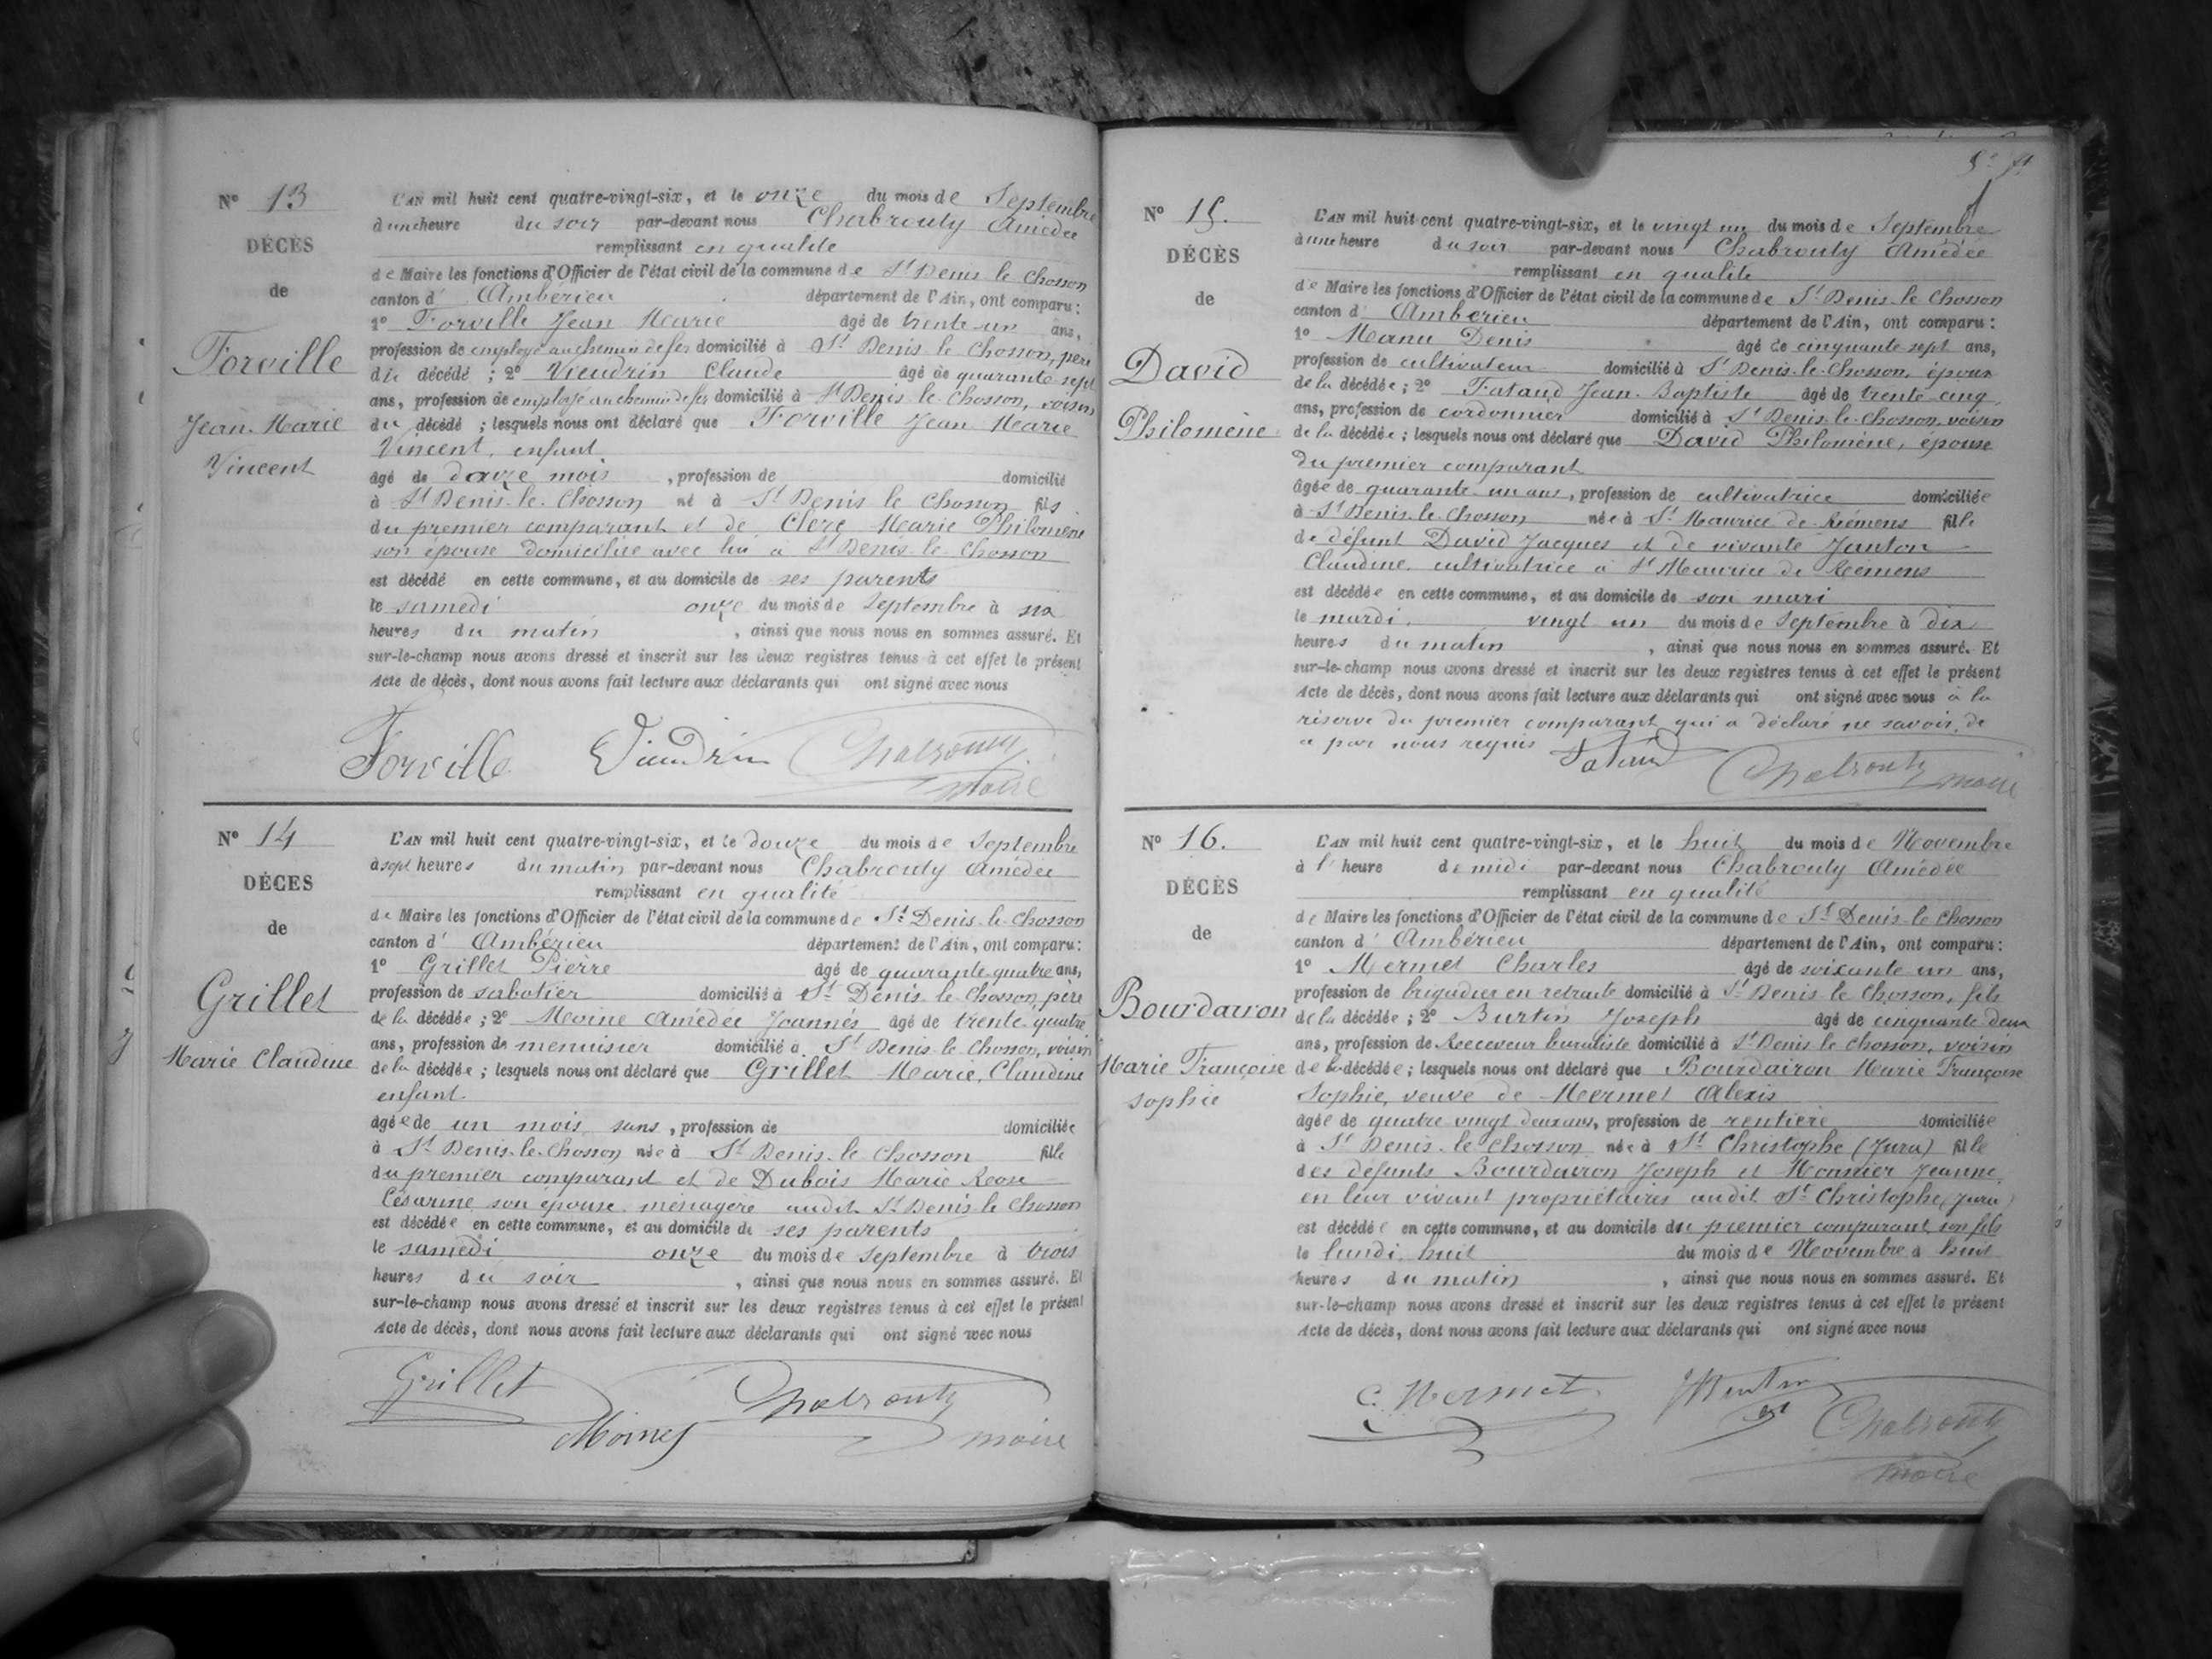 N° 13
DÉCÈS
de
Forville
Jean Marie
Vincent
L'AN mil huit cent quatre-vingt-six, et le onze du mois de Septembre
à une heure du soir par-devant nous Chabrouty Amédée
remplissant en qualité
de Maire les fonctions d'Officier de l'état civil de la commune de St Denis le Chosson
canton d' Ambérieu département de l'Ain, ont comparu :
1° Forville Jean Marie âgé de trente un ans,
profession de employé au chemin de fer domicilié à St Denis le Chosson, père
du décédé ; 2° Vieudrin Claude âgé de quarante sept
ans, profession de employé au chemin de fer domicilié à St Denis le Chosson, voisin
du décédé ; lesquels nous ont déclaré que Forville Jean Marie
Vincent, enfant
âgé de douze mois , profession de domicilié
à St Denis-le-Chosson né à St Denis le Chosson fils
du premier comparant et de Clerc Marie Philomène
son épouse domiciliée avec lui à St Denis-le-Chosson
est décédé en cette commune, et au domicile de ses parents
le samedi onze du mois de Septembre à six
heures du matin , ainsi que nous nous en sommes assuré. Et
sur-le-champ nous avons dressé et inscrit sur les deux registres tenus à cet effet le présent
Acte de décès, dont nous avons fait lecture aux déclarants qui ont signé avec nous
Forville Viaudrin Chabrouty
maire
N° 14
DÉCES
de
Grillet
Marie Claudine
L'AN mil huit cent quatre-vingt-six, et le douze du mois de Septembre
à sept heures du matin par-devant nous Chabrouty Amédée
remplissant en qualité
de Maire les fonctions d'Officier de l'état civil de la commune de St Denis-le-Chosson
canton d' Ambérieu département de l'Ain, ont comparu :
1° Grillet Pierre âgé de quarante quatre ans,
profession de sabotier domicilié à St Denis le Chosson père
de la décédée ; 2° Moine Amédée Joannés âgé de trente quatre
ans, profession de menuisier domicilié à St Denis le Chosson, voisin
de la décédée ; lesquels nous ont déclaré que Grillet Marie, Claudine
enfant
âgée de un mois , profession de domiciliée
à St Denis-le-Chosson née à St Denis-le Chosson fille
du premier comparant et de Dubois Marie Roose
Césarine son épouse ménagère audit St Denis le Chosson
est décédée en cette commune, et au domicile de ses parents
le samedi onze du mois de Septembre à trois
heures du soir , ainsi que nous nous en sommes assuré. Et
sur-le-champ nous avons dressé et inscrit sur les deux registres tenus à cet effet le présent
Acte de décès, dont nous avons fait lecture aux déclarants qui ont signé avec nous
Grillet Chabrouty
Moine maire
N° 15.
DÉCÈS
de
David
Philomène
L'AN mil huit cent quatre-vingt-six, et le vingt un du mois de Septembre
à une heure du soir par-devant nous Chabrouty Amédée
remplissant en qualité
de Maire les fonctions d'Officier de l'état civil de la commune de St Denis-le-Chosson
canton d' Ambérieu département de l'Ain, ont comparu :
1° Manu Denis âgé de cinquante sept ans,
profession de cultivateur domicilié à St Denis-le-Chosson, époux
de la décédée ; 2° Fataud Jean-Baptiste âgé de trente cinq
ans, profession de cordonnier domicilié à St Denis-le-Chosson, voisin
de la décédée ; lesquels nous ont déclaré que David Philomène, épouse
du premier comparant
âgée de quarante un ans, profession de cultivatrice domiciliée
à St Denis-le-Chosson née à St Maurice de Rémens fille
de défunt David Jacques et de vivante Janton
Claudine, cultivatrice à St Maurice de Rémens
est décédée en cette commune, et au domicile de son mari
le mardi vingt un du mois de Septembre à dix
heures du matin , ainsi que nous nous en sommes assuré. Et
sur-le-champ nous avons dressé et inscrit sur les deux registres tenus à cet effet le présent
Acte de décès, dont nous avons fait lecture aux déclarants qui ont signé avec nous à la
réserve du premier comparant qui a déclaré ne savoir, de
ce par nous requis Fataud Chabrouty maire
N° 16.
DÉCÈS
de
Bourdairon
Marie Françoise
Sophie
L'AN mil huit cent quatre-vingt-six, et le huit du mois de Novembre
à l' heure de midi par-devant nous Chabrouty Amédée
remplissant en qualité
de Maire les fonctions d'Officier de l'état civil de la commune de St Denis-le Chosson
canton d' Ambérieu département de l'Ain, ont comparu :
1° Mermet Charles âgé de soixante un ans,
profession de brigadier en retraite domicilié à St Denis le Chosson, fils
de la décédée ; 2° Burtin Joseph âgé de cinquante deux
ans, profession de Receveur buraliste domicilié à St Denis le Chosson, voisin
de la décédée ; lesquels nous ont déclaré que Bourdairon Marie Françoise
Sophie, veuve de Mermet Alexis
âgée de quatre vingt deux ans, profession de rentière domiciliée
à St Denis-le Chosson née à St Christophe (Jura) fille
des défunts Bourdairon Joseph et Monnier Jeanne,
en leur vivant propriétaires audit St Christophe (Jura)
est décédée en cette commune, et au domicile du premier comparant son fils
le lundi, huit du mois de Novembre à huit
heures du matin , ainsi que nous nous en sommes assuré. Et
sur-le-champ nous avons dressé et inscrit sur les deux registres tenus à cet effet le présent
Acte de décès, dont nous avons fait lecture aux déclarants qui ont signé avec nous
C. Mermet JBurtin Chabrouty
maire